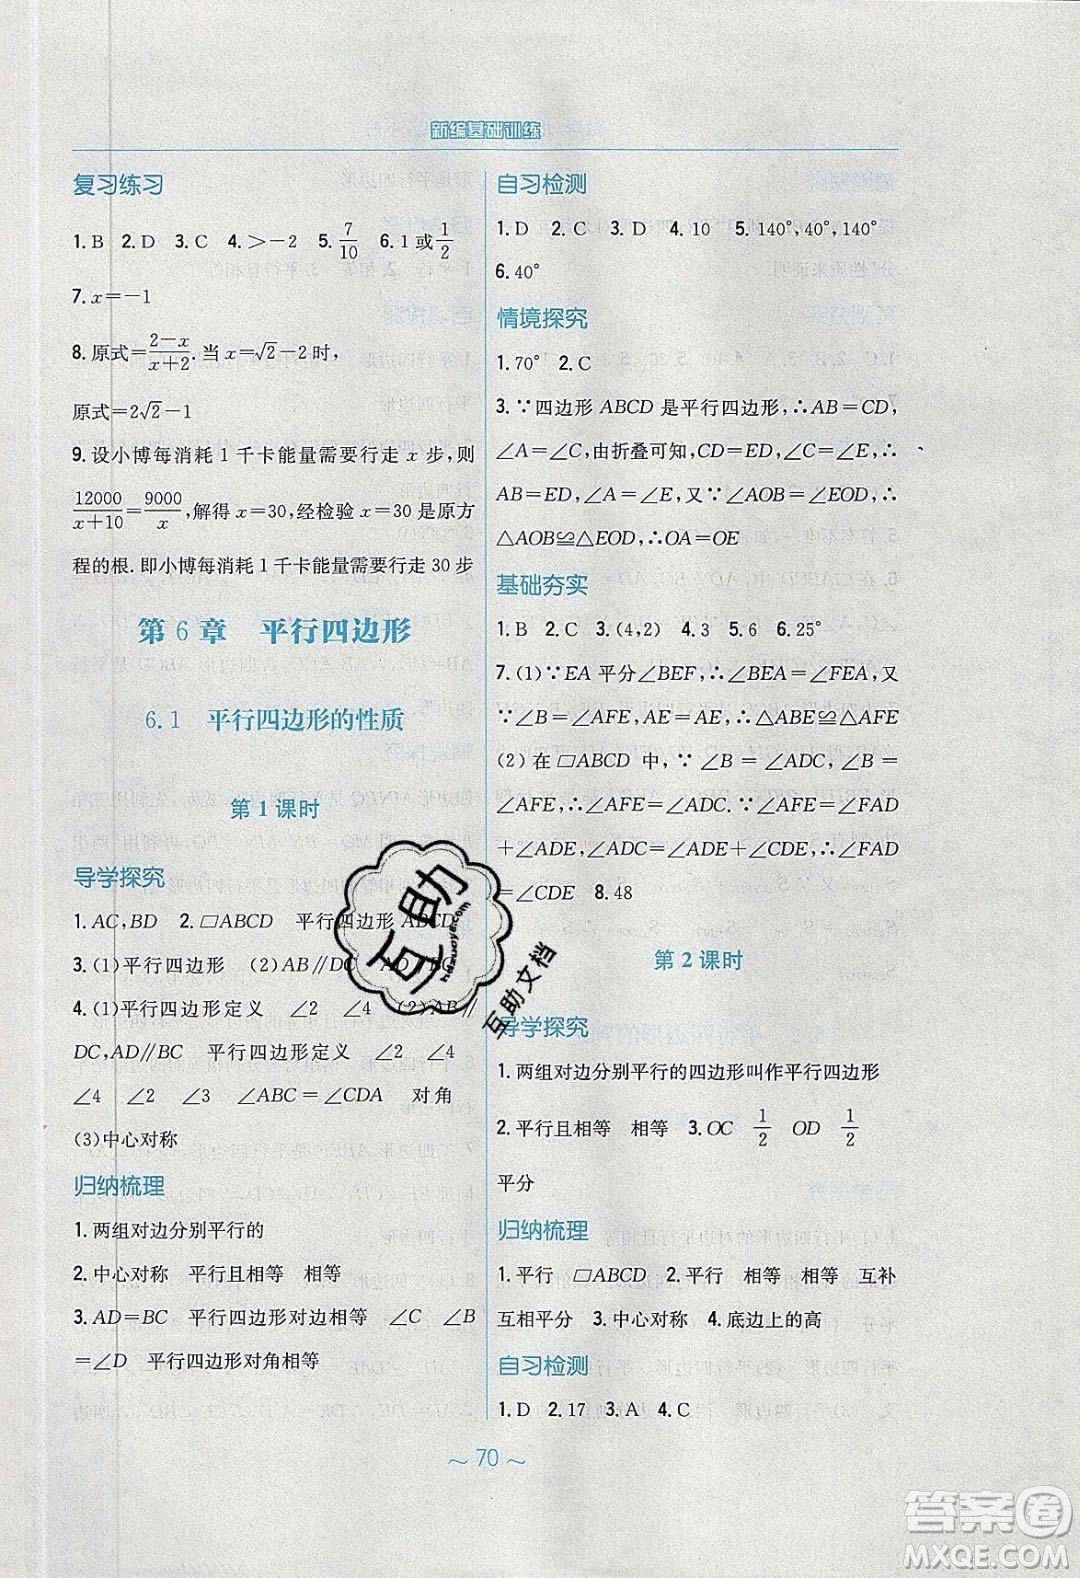 新编基础训练
复习练习
1. B 2. D 3. C 4. >-2 5. 7/10 6. 1或1/2
7. x=-1
8. 原式=(2-x)/(x+2). 当 x=√2-2时,
原式=2√2-1
9. 设小博每消耗1千卡能量需要行走 x 步,则
12000/(x+10)=9000/x,解得 x=30,经检验 x=30是原方
程的根. 即小博每消耗1千卡能量需要行走30步
第6章 平行四边形
6.1 平行四边形的性质
第1课时
导学探究
1. AC,BD 2. ▱ABCD 平行四边形 ABCD
3. (1)平行四边形 (2)AB∥DC
4. (1)平行四边形定义 ∠2 ∠4 (2)AB∥
DC,AD∥BC 平行四边形定义 ∠2 ∠4
∠4 ∠2 ∠3 ∠CBA=∠CDA 对角
(3)中心对称
归纳梳理
1. 两组对边分别平行的
2. 中心对称 平行且相等 相等
3. AD=BC 平行四边形对边相等 ∠C ∠B
=∠D 平行四边形对角相等
自习检测
1. D 2. C 3. D 4. 10 5. 140°,40°,140°
6. 40°
情境探究
1. 70° 2. C
3. ∵四边形 ABCD 是平行四边形,∴AB=CD,
∠A=∠C,由折叠可知,CD=ED,∠C=∠E,∴
AB=ED,∠A=∠E,又∵∠AOB=∠EOD,∴
△AOB≌△EOD,∴OA=OE
基础夯实
1. B 2. C 3. (4,2) 4. 3 5. 6 6. 25°
7. (1)∵EA 平分∠BEF,∴∠BEA=∠FEA,又
∵∠B=∠AFE,AE=AE,∴△ABE≌△AFE
(2)在▱ABCD 中,∵∠B=∠ADC,∠B
=∠AFE,∴∠AFE=∠ADC,∵∠AFE=∠FAD
+∠ADE,∠ADC=∠ADE+∠CDE,∴∠FAD
=∠CDE 8. 48
第2课时
导学探究
1. 两组对边分别平行的四边形叫作平行四边形
2. 平行且相等 相等 3. OC 1/2 OD 1/2
平分
归纳梳理
1. 平行 ▱ABCD 2. 平行 相等 相等 互补
互相平分 3. 中心对称 4. 底边上的高
自习检测
1. D 2. 17 3. A 4. C
～70～
互助
hdzuoye.com
互助文档
答案圈
MXQE.COM